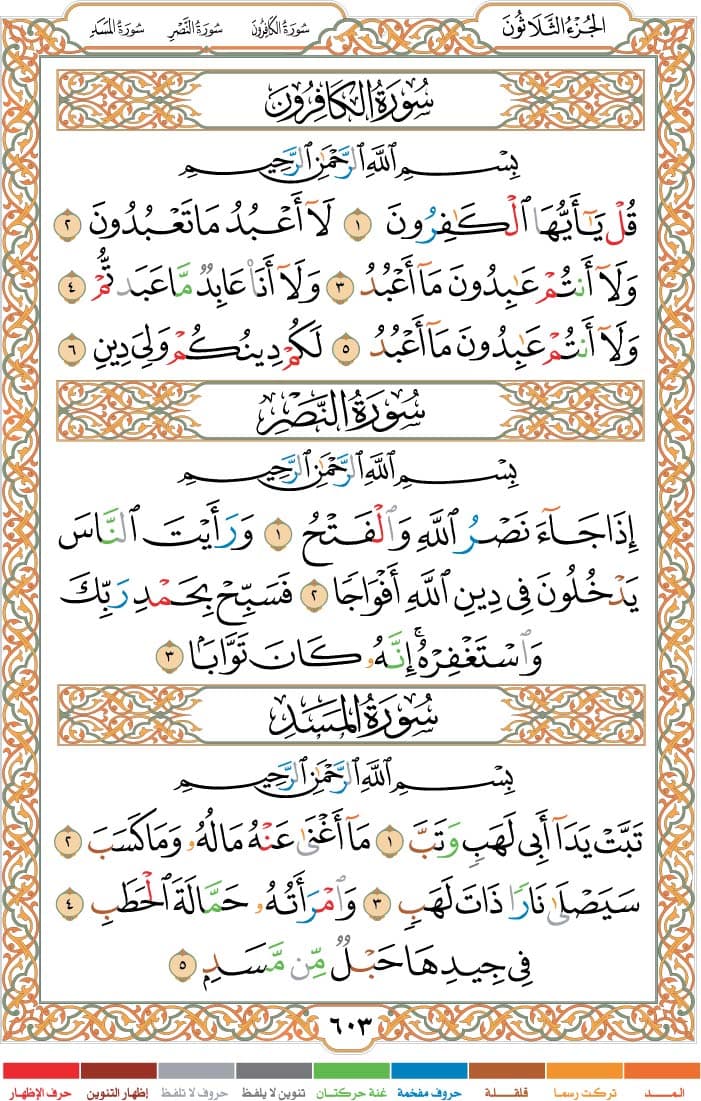 الجُزْءُ الثَّلَاثُونَ سُورَةُ الكَافِرُونَ سُورَةُ النَّصْرِ سُورَةُ المَسَدِ
سُورَةُ الكَافِرُونَ
بِسْمِ ٱللَّهِ ٱلرَّحْمَٰنِ ٱلرَّحِيمِ
قُلْ يَٰٓأَيُّهَا ٱلْكَٰفِرُونَ ١ لَآ أَعْبُدُ مَا تَعْبُدُونَ ٢
وَلَآ أَنتُمْ عَٰبِدُونَ مَآ أَعْبُدُ ٣ وَلَآ أَنَا۠ عَابِدٌ مَّا عَبَدتُّمْ ٤
وَلَآ أَنتُمْ عَٰبِدُونَ مَآ أَعْبُدُ ٥ لَكُمْ دِينُكُمْ وَلِىَ دِينِ ٦
سُورَةُ النَّصْرِ
بِسْمِ ٱللَّهِ ٱلرَّحْمَٰنِ ٱلرَّحِيمِ
إِذَا جَآءَ نَصْرُ ٱللَّهِ وَٱلْفَتْحُ ١ وَرَأَيْتَ ٱلنَّاسَ
يَدْخُلُونَ فِى دِينِ ٱللَّهِ أَفْوَاجًا ٢ فَسَبِّحْ بِحَمْدِ رَبِّكَ
وَٱسْتَغْفِرْهُ ۚ إِنَّهُۥ كَانَ تَوَّابًۢا ٣
سُورَةُ المَسَدِ
بِسْمِ ٱللَّهِ ٱلرَّحْمَٰنِ ٱلرَّحِيمِ
تَبَّتْ يَدَآ أَبِى لَهَبٍ وَتَبَّ ١ مَآ أَغْنَىٰ عَنْهُ مَالُهُۥ وَمَا كَسَبَ ٢
سَيَصْلَىٰ نَارًا ذَاتَ لَهَبٍ ٣ وَٱمْرَأَتُهُۥ حَمَّالَةَ ٱلْحَطَبِ ٤
فِى جِيدِهَا حَبْلٌ مِّن مَّسَدٍۭ ٥
٦٠٣
المـــد تركت رسما قلقـلة حروف مفخمة غنة حركتان تنوين لا يلفظ حروف لا تلفظ إظهار التنوين حرف الإظهار